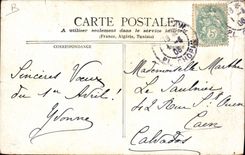 CARTE POSTALE
A utiliser seulement dans le service intérieur
(France, Algérie, Tunisie)
CORRESPONDANCE
Sincères Vœux
du 1er Avril!
Yvonne
Mademoiselle Marthe
Le Saulnier
42 Rue St Ouen
Caen
Calvados